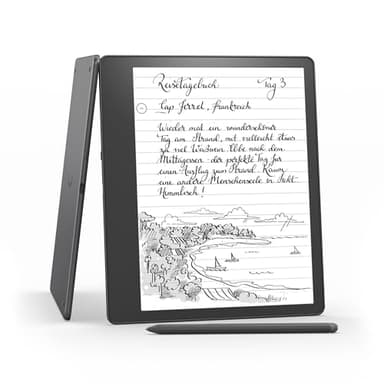 Reisetagebuch Tag 3
Cap Ferret, Frankreich
Wieder mal ein wunderschöner
Tag am Strand, mit vielleicht etwas
zu viel Wind. Ebbe nach dem
Mittagessen der perfekte Tag für
einen Ausflug zum Strand. Kaum
eine andere Menschenseele in Sicht.
Himmlisch!